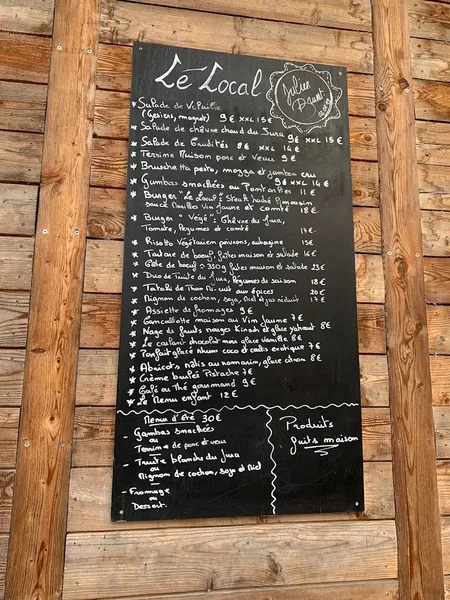 Le Local
Julien
Salade de Volaille
(Gésiers, magret) 9€ XXL 15€
Salade de chèvre chaud du Jura 9€ XXL 15€
Salade de Crudités 8€ XXL 14€
Terrine Maison porc et veau 9€
Bruschetta pesto, mozza et jambon cru 9€ XXL 14€
Gambas smachées au Pontarlier 11€
Burger "Le Local": Steak haché
sauce Vin Jaune et comté 18€
Burger "Végé": Chèvre du Jura,
Tomate, Légumes et comté 17€
Risotto Végétarien poivrons, aubergine 15€
Tartare de boeuf, frites maison et salade 16€
Côte de boeuf >350g frites maison et salade 23€
Duo de Truite du Jura, Légumes de saison 18€
Tataki de Thon Mi-cuit aux épices 20€
Mignon de cochon, soja, miel et jus réduit 17€
Assiette de fromages 9€
Cancoillotte maison au Vin Jaune 7€
Nage de fruits rouges Kirsch et glace yahourt 8€
Le coulant chocolat noir glace vanille 8€
Parfait glacé rhum coco et coulis exotique 7€
Abricots rôtis au romarin, glace citron 8€
Crème brulée Pistache 7€
Café ou Thé gourmand 9€
Le Menu enfant 12€
Menu d'été 30€
- Gambas smachées
ou
Terrine de porc et veau
- Truite blanche du Jura
ou
Mignon de cochon, soja et miel
- Fromage
ou
Dessert.
Produits
faits maison